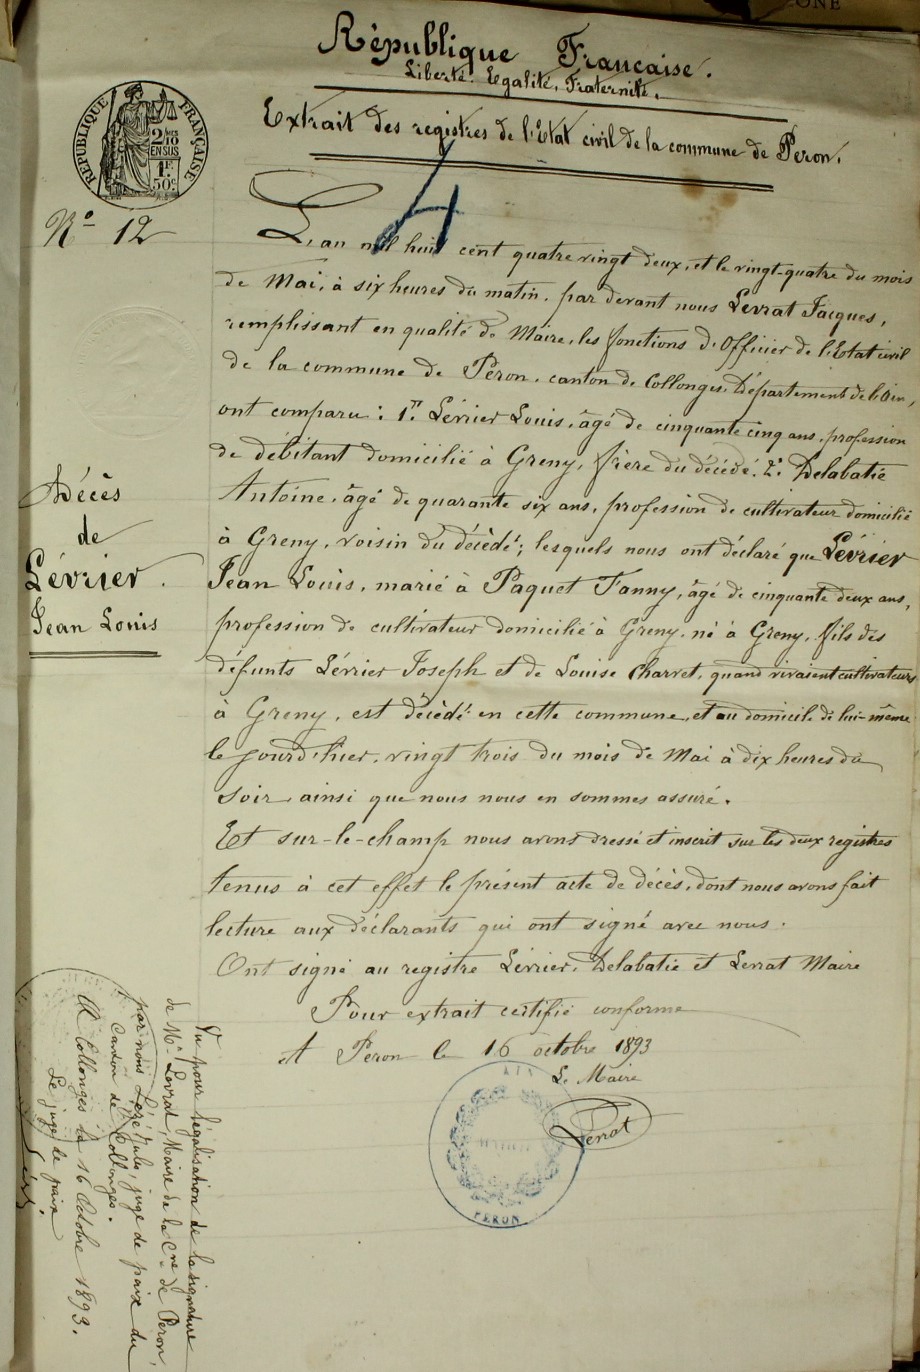 ONE
République Française.
Liberté. Egalité. Fraternité.
RÉPUBLIQUE FRANÇAISE
2/10 EN SUS
1F. 50c
Extrait des registres de l'Etat civil de la commune de Péron.
4
N° 12
L'an mil huit cent quatre vingt deux, et le vingt-quatre du mois
de Mai, à six heures du matin, par devant nous Levrat Jacques,
remplissant en qualité de Maire, les fonctions d'Officier de l'Etat civil
de la commune de Péron, canton de Collonges, Département de l'Ain,
ont comparu : 1°. Lévrier Louis, âgé de cinquante cinq ans, profession
de débitant domicilié à Greny, frère du décédé. 2°. Delabatie
Antoine, âgé de quarante six ans, profession de cultivateur domicilié
à Greny, voisin du décédé; lesquels nous ont déclaré que Lévrier
Jean Louis, marié à Paquet Fanny, âgé de cinquante deux ans,
profession de cultivateur domicilié à Greny, né à Greny, fils des
défunts Lévrier Joseph et de Louise Charvet, quand vivaient cultivateurs
à Greny, est décédé en cette commune, et au domicile de lui-même
le jourd'hier, vingt trois du mois de Mai à dix heures du
soir, ainsi que nous nous en sommes assuré.
Et sur-le-champ nous avons dressé et inscrit sur les deux registres
tenus à cet effet le présent acte de décès, dont nous avons fait
lecture aux déclarants qui ont signé avec nous.
Ont signé au registre Lévrier, Delabatie et Levrat Maire
Pour extrait certifié conforme
A Péron le 16 octobre 1893
Le Maire
Levrat
AIN
MAIRIE
PERON
Décès
de
Lévrier
Jean Louis
Vu pour légalisation de la signature
de Mr. Levrat, Maire de la Cne de Péron,
par nous Jules, juge de paix du
canton de Collonges.
A Collonges le 16 Octobre 1893.
Le juge de paix